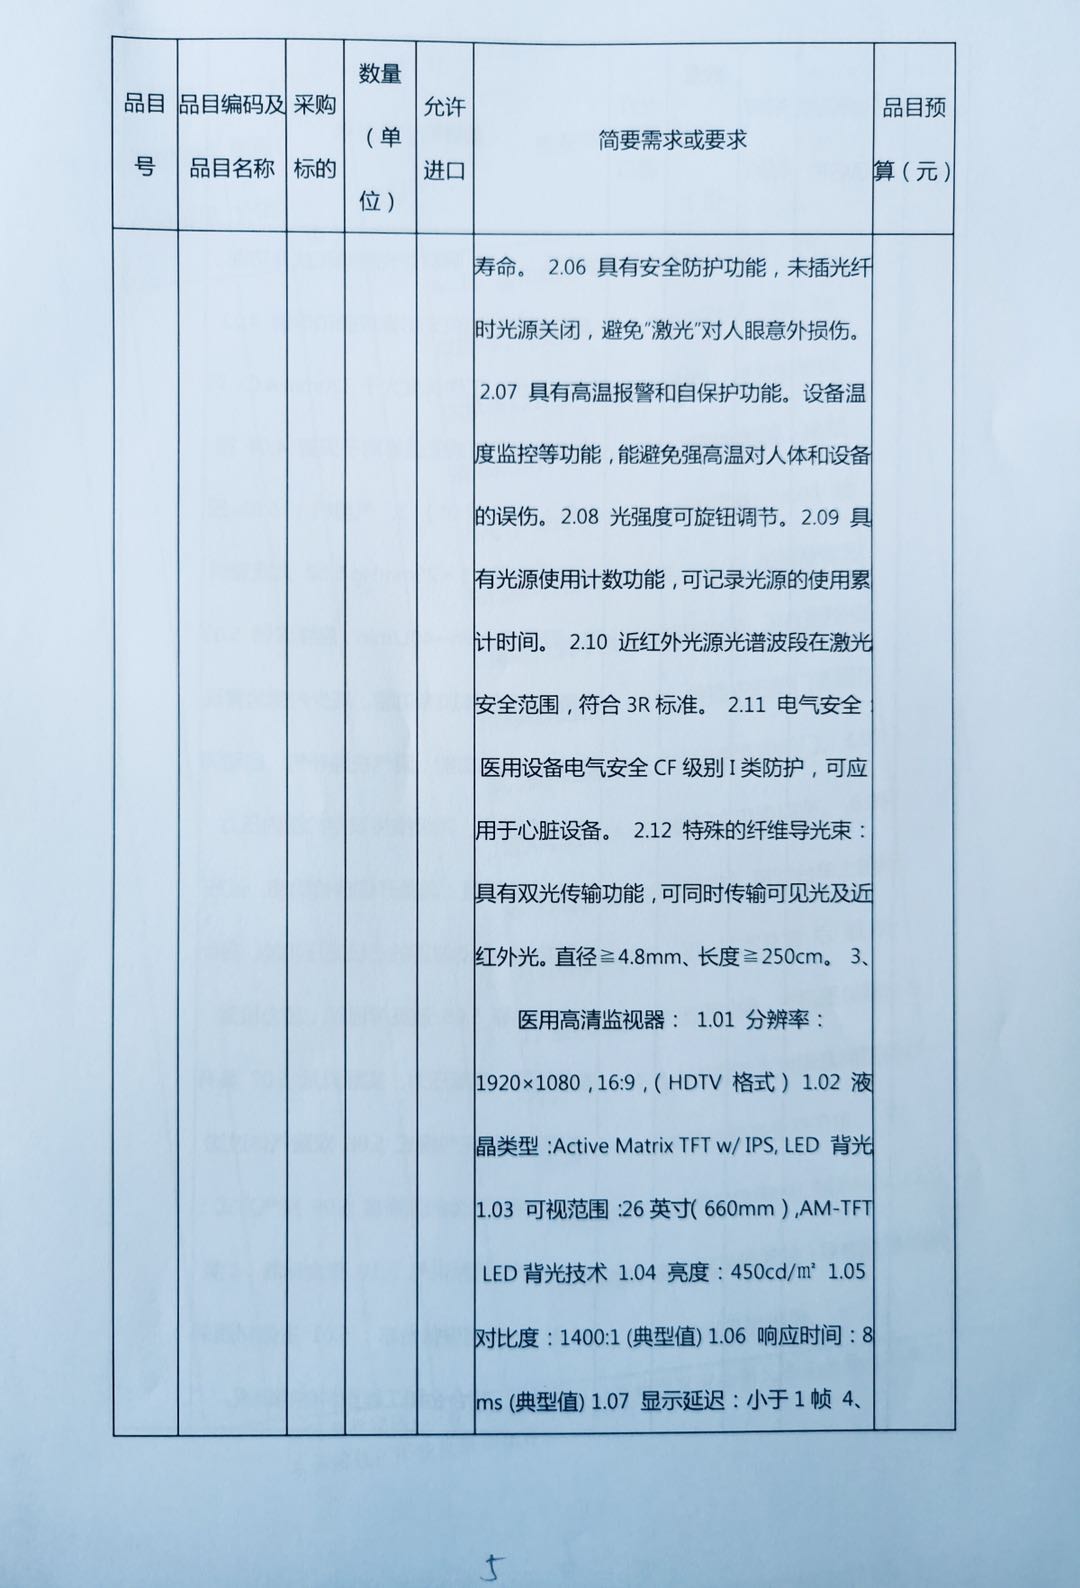 品目号
品目编码及品目名称
采购标的
数量（单位）
允许进口
简要需求或要求
品目预算（元）
寿命。 2.06 具有安全防护功能，未插光纤
时光源关闭，避免"激光"对人眼意外损伤。
2.07 具有高温报警和自保护功能。设备温
度监控等功能，能避免强高温对人体和设备
的误伤。2.08 光强度可旋钮调节。2.09 具
有光源使用计数功能，可记录光源的使用累
计时间。 2.10 近红外光源光谱波段在激光
安全范围，符合 3R 标准。 2.11 电气安全：
医用设备电气安全 CF 级别 I 类防护，可应
用于心脏设备。 2.12 特殊的纤维导光束：
具有双光传输功能，可同时传输可见光及近
红外光。直径≧4.8mm、长度≧250cm。 3、
医用高清监视器： 1.01 分辨率：
1920×1080，16:9，（HDTV 格式） 1.02 液
晶类型：Active Matrix TFT w/ IPS, LED 背光
1.03 可视范围：26 英寸（660mm），AM-TFT
LED 背光技术 1.04 亮度：450cd/㎡ 1.05
对比度：1400:1 (典型值) 1.06 响应时间：8
ms (典型值) 1.07 显示延迟：小于 1 帧 4、
5